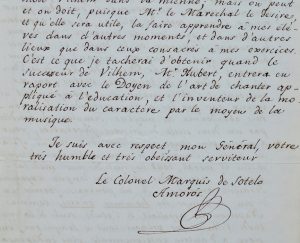 et on doit, puisque Mr. le Maréchal le desire
et qu'elle sera utile, la faire apprendre à mes élé-
ves dans d'autres moments, et dans d'autres
lieux que dans ceux consacrés à mes exercices
C'est ce que je tacherai d'obtenir quand le
sucesseur de Vilhem, Mr. Hubert, entrera en
raport avec le Doyen de l'art de chanter ap-
pliqué à l'éducation, et l'inventeur de la mo-
ralisation du caractère par le moyen de la
musique.
Je suis avec respect, mon Général, votre
très humble et très obeissant serviteur
Le Colonel Marquis de Sotelo
Amorós